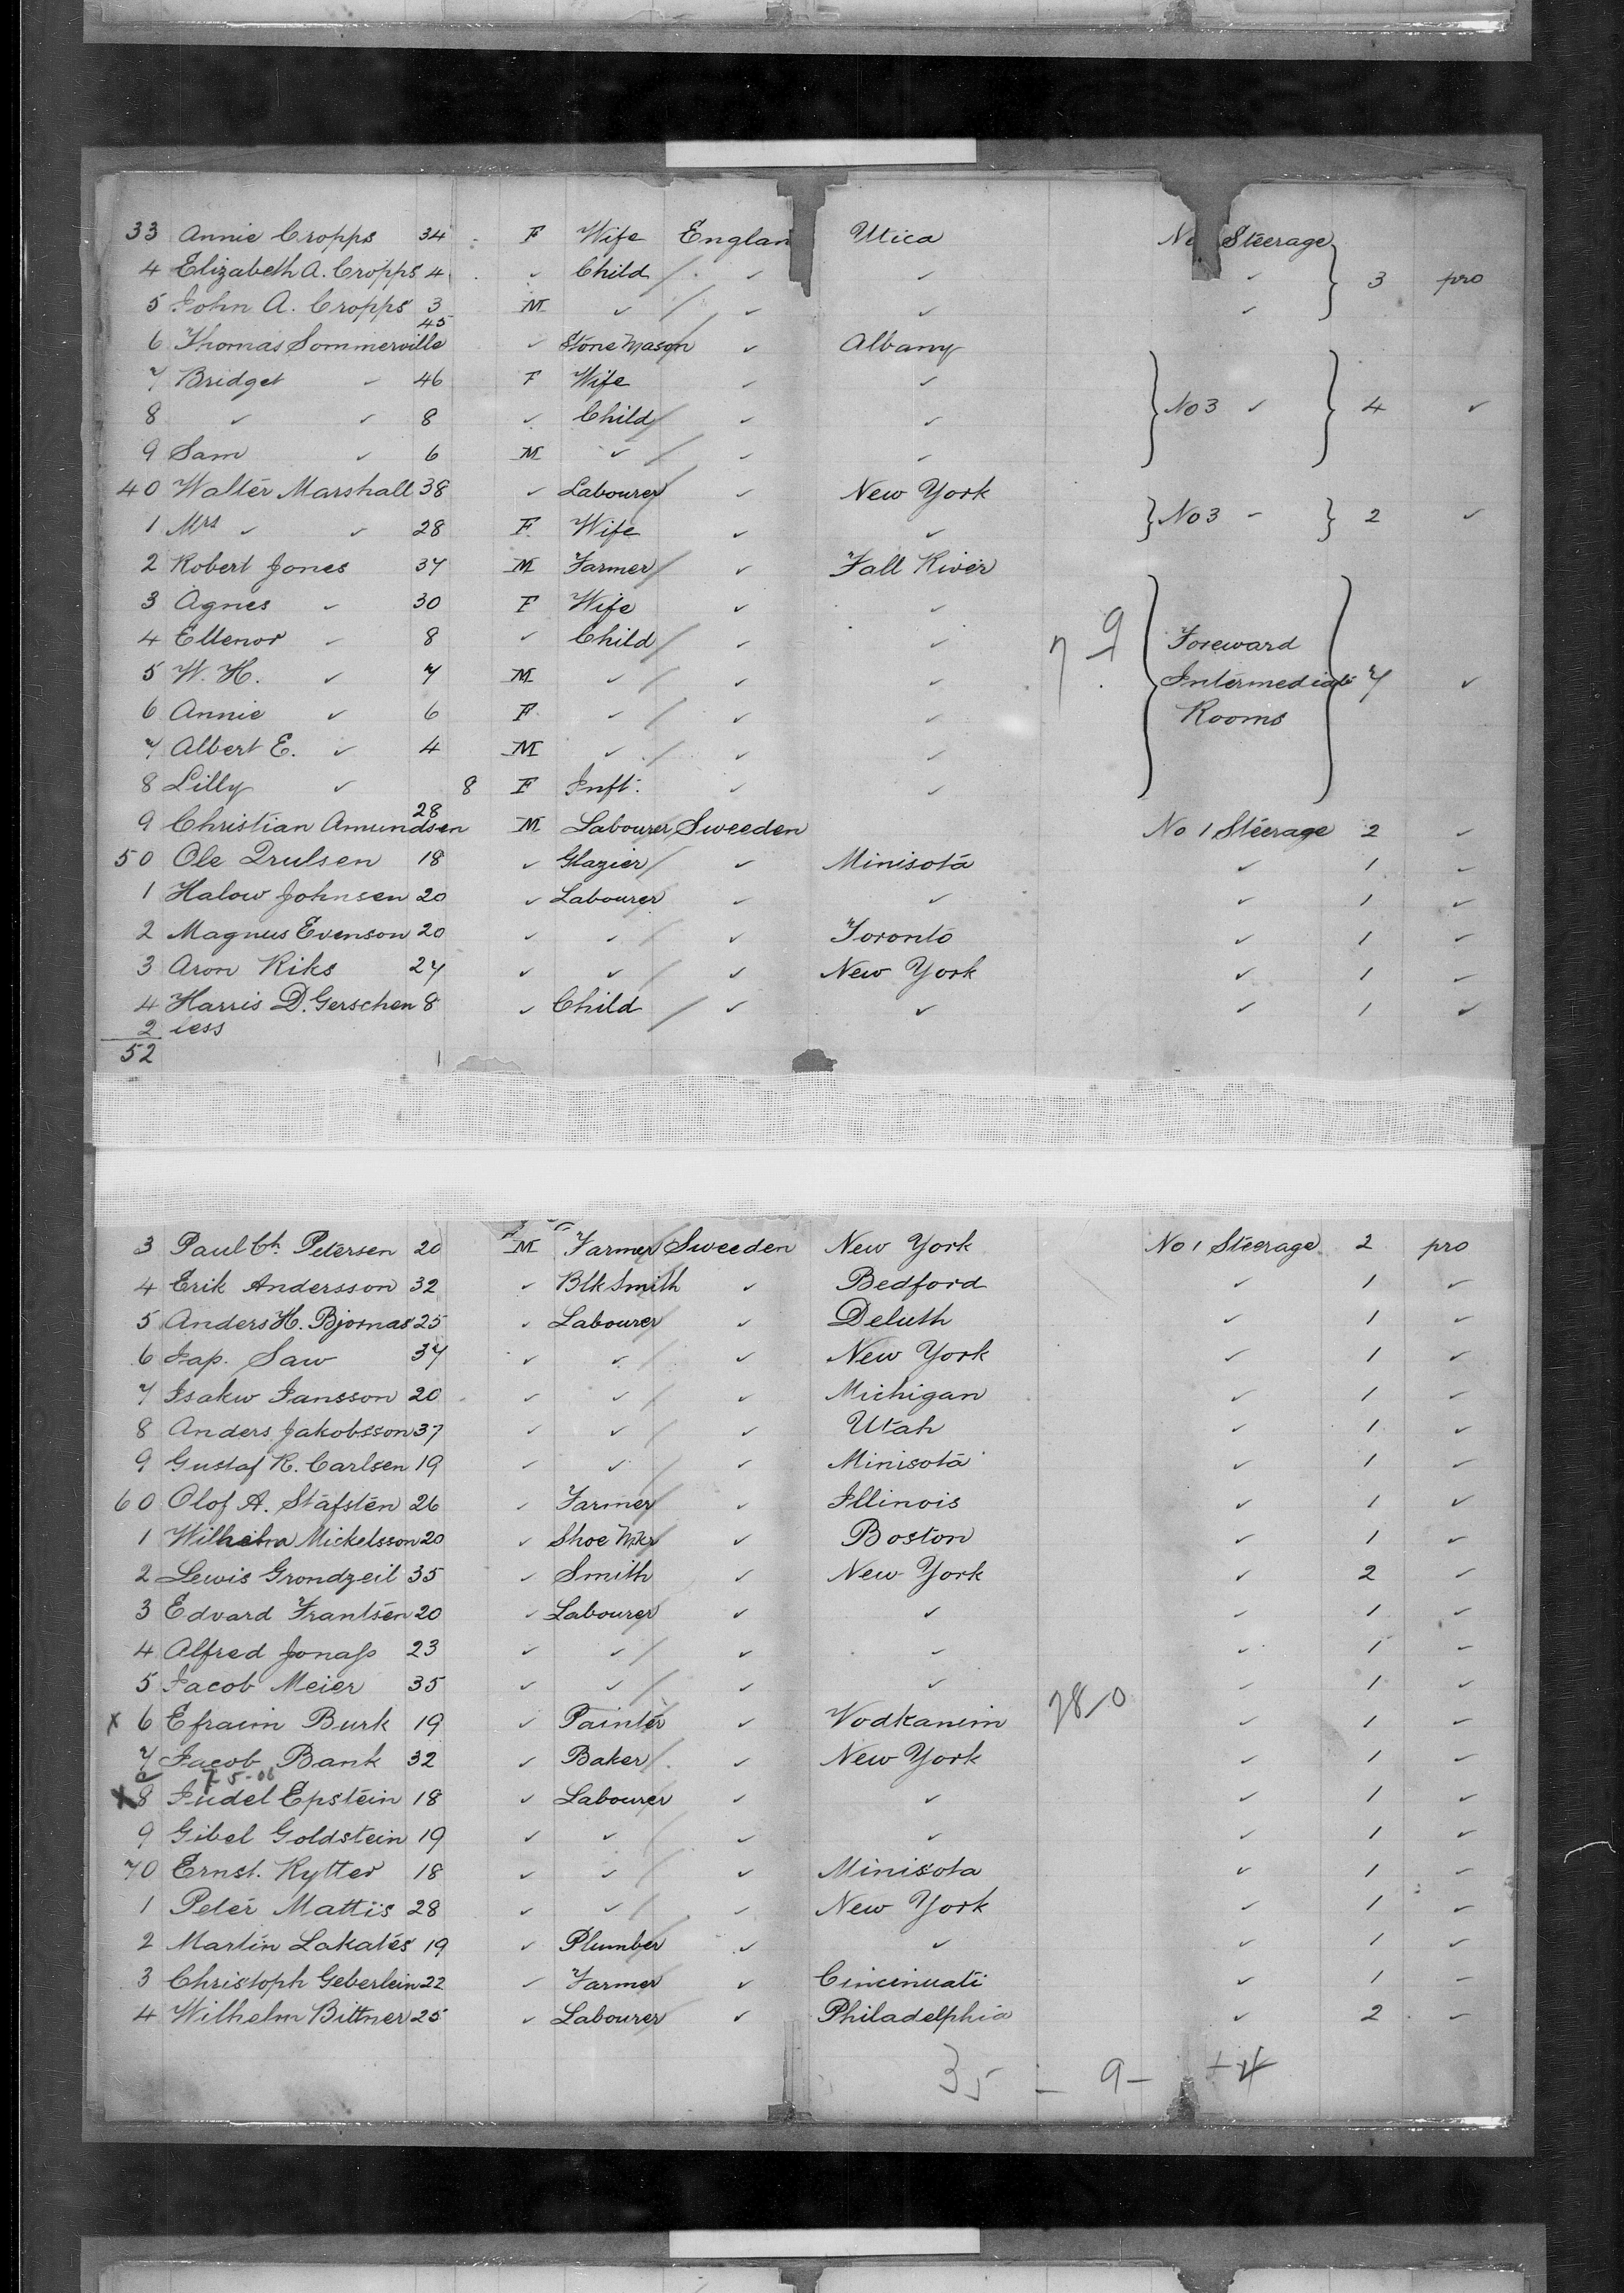 33 Annie Cropps 34 F Wife Englan Utica No Steerage
4 Elizabeth A. Cropps 4 ✓ Child / ✓ ✓ ✓ 3 pro
5 John A. Cropps 3 M ✓ / ✓ ✓ ✓
6 Thomas Sommerville 45 ✓ Stone Mason ✓ Albany
7 Bridget ✓ 46 F Wife ✓ ✓
8 ✓ ✓ 8 ✓ Child / ✓ ✓ No 3 ✓ 4 ✓
9 Sam ✓ 6 M ✓ / ✓ ✓
40 Walter Marshall 38 ✓ Labourer ✓ New York
1 Mrs ✓ ✓ 28 F. Wife ✓ ✓ No 3 ✓ 2 ✓
2 Robert Jones 37 M Farmer / ✓ Fall River
3 Agnes ✓ 30 F Wife ✓ ✓
4 Ellenor ✓ 8 ✓ Child / ✓ ✓ 7 9 Foreward
5 W. H. ✓ 7 M ✓ / ✓ ✓ Intermediate 7 ✓
6 Annie ✓ 6 F ✓ / ✓ ✓ Rooms
7 Albert E. ✓ 4 M ✓ / ✓ ✓
8 Lilly ✓ 8 F Inft. ✓ ✓
9 Christian Amundsen 28 M Labourer Sweeden No 1 Steerage 2 ✓
50 Ole Trulsen 18 ✓ Glazier / ✓ Minisota ✓ 1 ✓
1 Halow Johnsen 20 ✓ Labourer ✓ ✓ ✓ 1 ✓
2 Magnus Evenson 20 ✓ ✓ / ✓ Toronto ✓ 1 ✓
3 Aron Riks 27 ✓ ✓ / ✓ New York ✓ 1 ✓
4 Harris D. Gerschen 8 ✓ Child / ✓ ✓ ✓ 1 ✓
2 less
52
3 Paul Ch. Petersen 20 M Farmer / Sweeden New York No 1 Steerage 2 pro
4 Erik Andersson 32 ✓ Blk Smith ✓ Bedford ✓ 1 ✓
5 Anders H. Bjornas 25 ✓ Labourer ✓ Deluth ✓ 1 ✓
6 Jap. Saw 37 ✓ ✓ / ✓ New York ✓ 1 ✓
7 Isakw Jansson 20 ✓ ✓ / ✓ Michigan ✓ 1 ✓
8 Anders Jakobsson 37 ✓ ✓ / ✓ Utah ✓ 1 ✓
9 Gustaf R. Carlsen 19 ✓ ✓ / ✓ Minisota ✓ 1 ✓
60 Olof A. Stafsten 26 ✓ Farmer / ✓ Illinois ✓ 1 ✓
1 Wilhelm Mickelsson 20 ✓ Shoe Mkr ✓ Boston ✓ 1 ✓
2 Lewis Grondzeil 35 ✓ Smith ✓ New York ✓ 2 ✓
3 Edvard Frantsen 20 ✓ Labourer ✓ ✓ ✓ 1 ✓
4 Alfred Jonass 23 ✓ ✓ / ✓ ✓ ✓ 1 ✓
5 Jacob Meier 35 ✓ ✓ / ✓ ✓ ✓ 1 ✓
x 6 Efraim Burk 19 ✓ Painter ✓ Vodkanim 28-0 ✓ 1 ✓
7 Jacob Bank 32 ✓ Baker / ✓ New York ✓ 1 ✓
x 8 Judel Epstein 18 ✓ Labourer ✓ ✓ ✓ 1 ✓
9 Gibel Goldstein 19 ✓ ✓ / ✓ ✓ ✓ 1 ✓
70 Ernst. Kytter 18 ✓ ✓ / ✓ Minisota ✓ 1 ✓
1 Peter Mattis 28 ✓ ✓ / ✓ New York ✓ 1 ✓
2 Martin Lakates 19 ✓ Plumber ✓ ✓ ✓ 1 ✓
3 Christoph Geberlein 22 ✓ Farmer ✓ Cincinnati ✓ 1 ✓
4 Wilhelm Bittner 25 ✓ Labourer ✓ Philadelphia ✓ 2 ✓
35 - 9 -